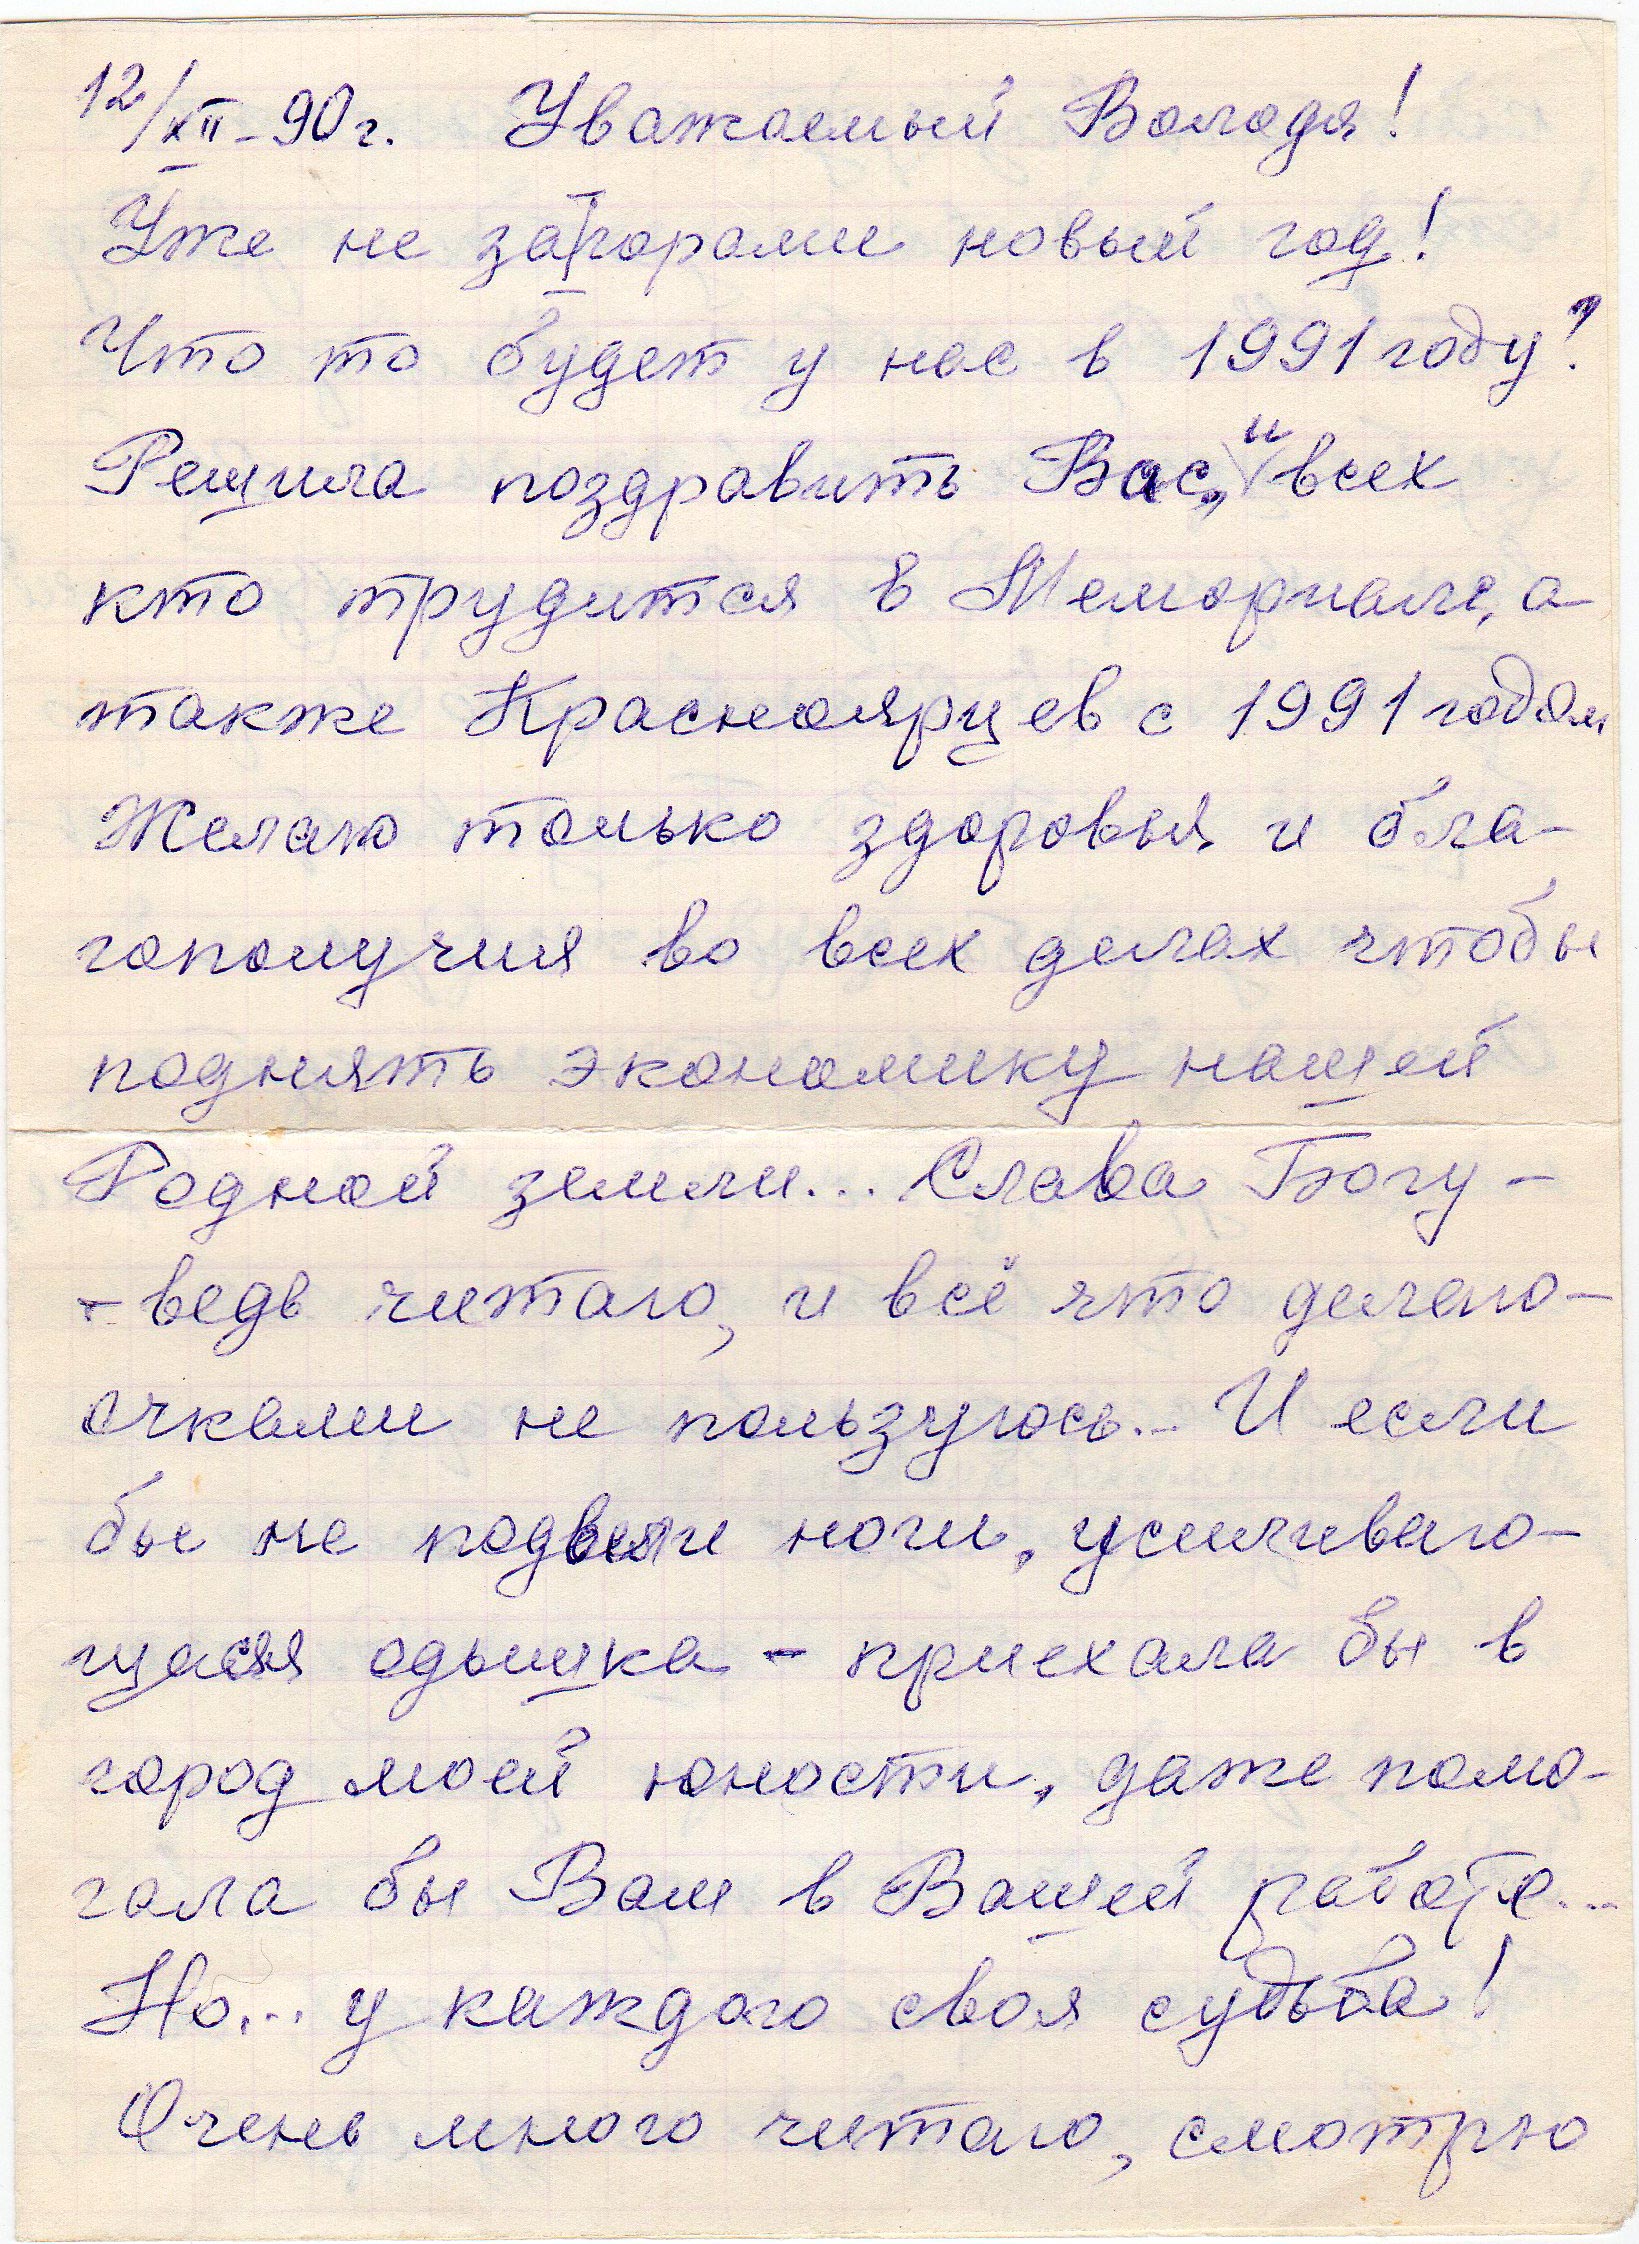 12/XII-90г. Уважаемый Володя!
Уже не за горами новый год!
Что то будет у нас в 1991 году?
Решила поздравить Вас, и всех
кто трудится в Мемориале, а
также Красноярцев с 1991 годом
Желаю только здоровья и бла-
гополучия во всех делах чтобы
поднять экономику нашей
Родной земли... Слава Богу -
- ведь читаю, и всё что делаю -
очками не пользуюсь... И если
бы не подвели ноги, усиливаю-
щаяся одышка - приехала бы в
город моей юности, даже помо-
гала бы Вам в Вашей работе...
Но... у каждого своя судьба!
Очень много читаю, смотрю